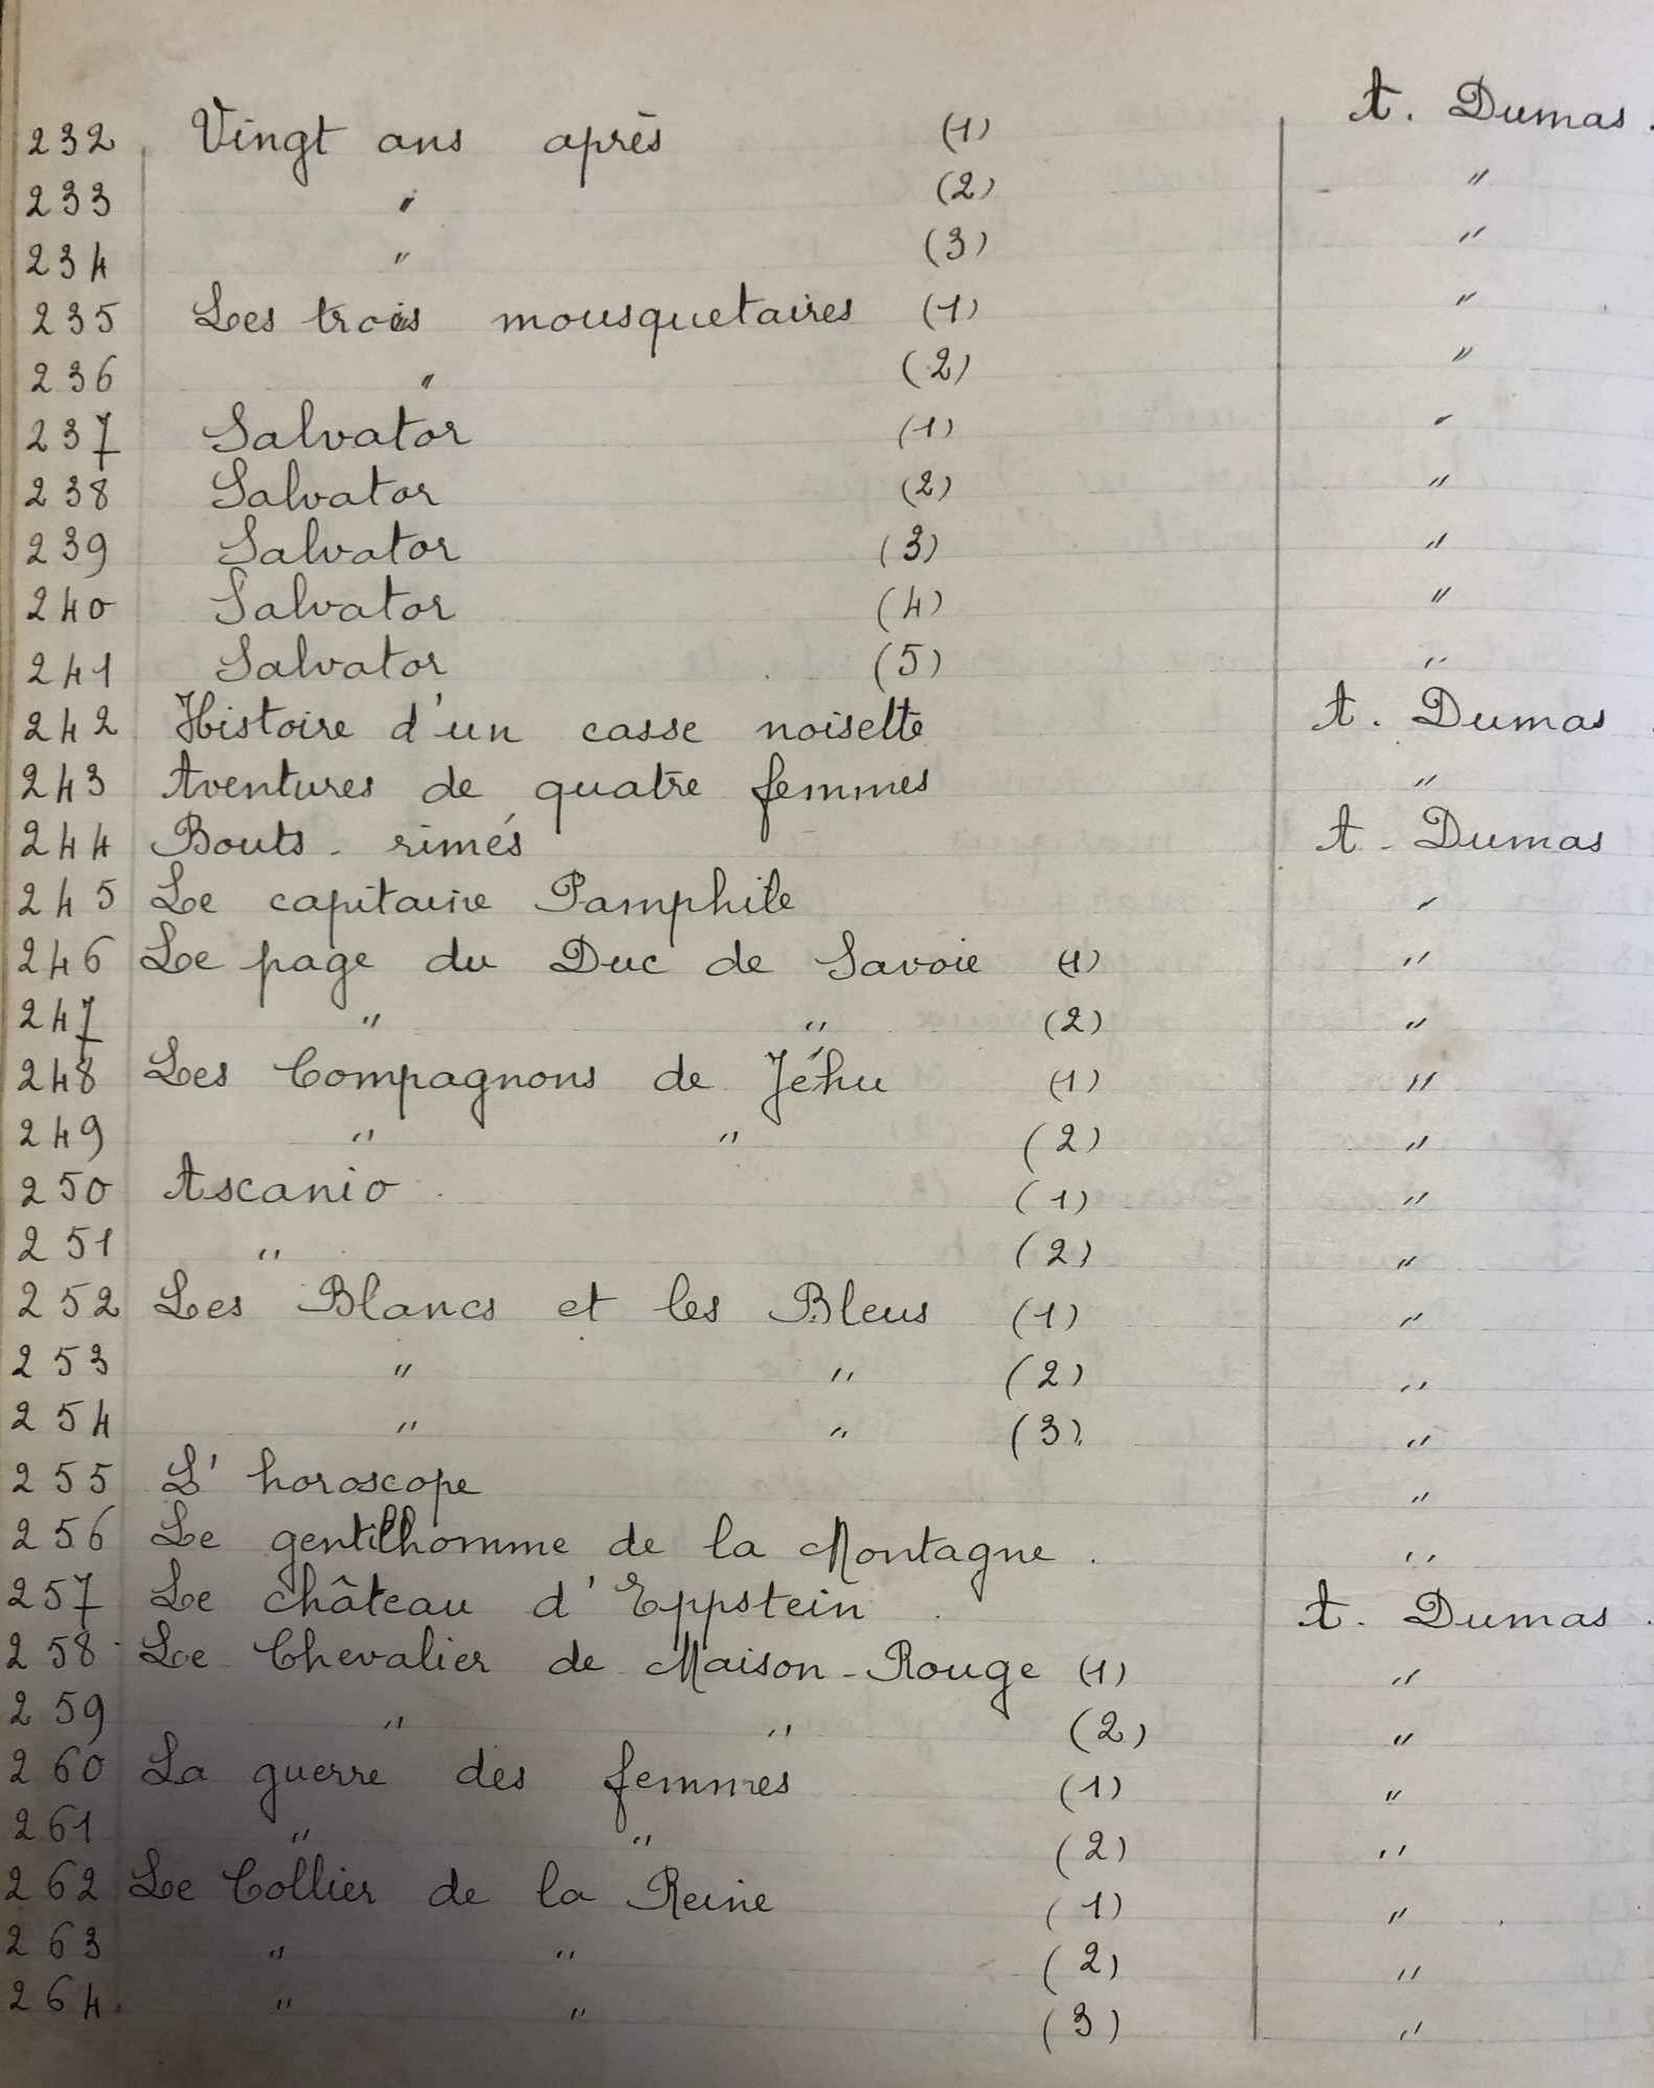 232 Vingt ans après (1) A. Dumas.
233 " (2) "
234 " (3) "
235 Les trois mousquetaires (1) "
236 " (2) "
237 Salvator (1) "
238 Salvator (2) "
239 Salvator (3) "
240 Salvator (4) "
241 Salvator (5) "
242 Histoire d'un casse noisette A. Dumas.
243 Aventures de quatre femmes "
244 Bouts-rimés A. Dumas
245 Le capitaine Pamphile "
246 Le page du Duc de Savoie (1) "
247 " " (2) "
248 Les Compagnons de Jéhu (1) "
249 " " (2) "
250 Ascanio (1) "
251 " (2) "
252 Les Blancs et les Bleus (1) "
253 " " (2) "
254 " " (3) "
255 L'horoscope "
256 Le gentilhomme de la Montagne. "
257 Le château d'Eppstein A. Dumas.
258 Le Chevalier de Maison-Rouge (1) "
259 " " (2) "
260 La guerre des femmes (1) "
261 " " (2) "
262 Le Collier de la Reine (1) "
263 " " (2) "
264. " " (3) "